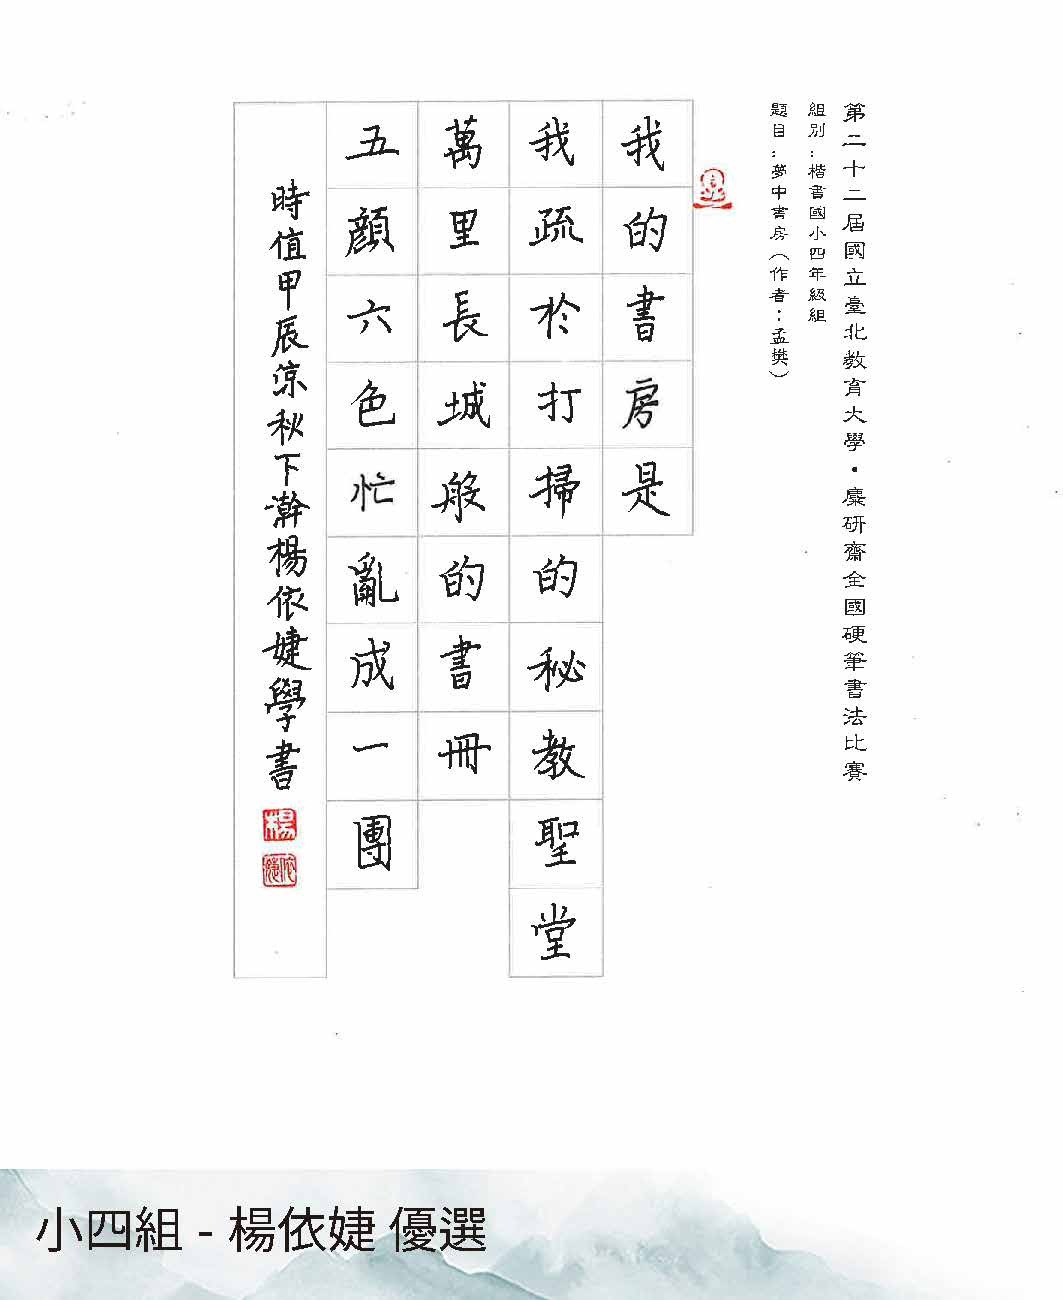 第二十二屆國立臺北教育大學・麋研齋全國硬筆書法比賽
組別：楷書國小四年級組
題目：夢中書房（作者：孟樊）
我的書房是
我疏於打掃的秘教聖堂
萬里長城般的書冊
五顏六色忙亂成一團
時值甲辰涼秋下澣楊依婕學書
楊
依婕
小四組 - 楊依婕 優選